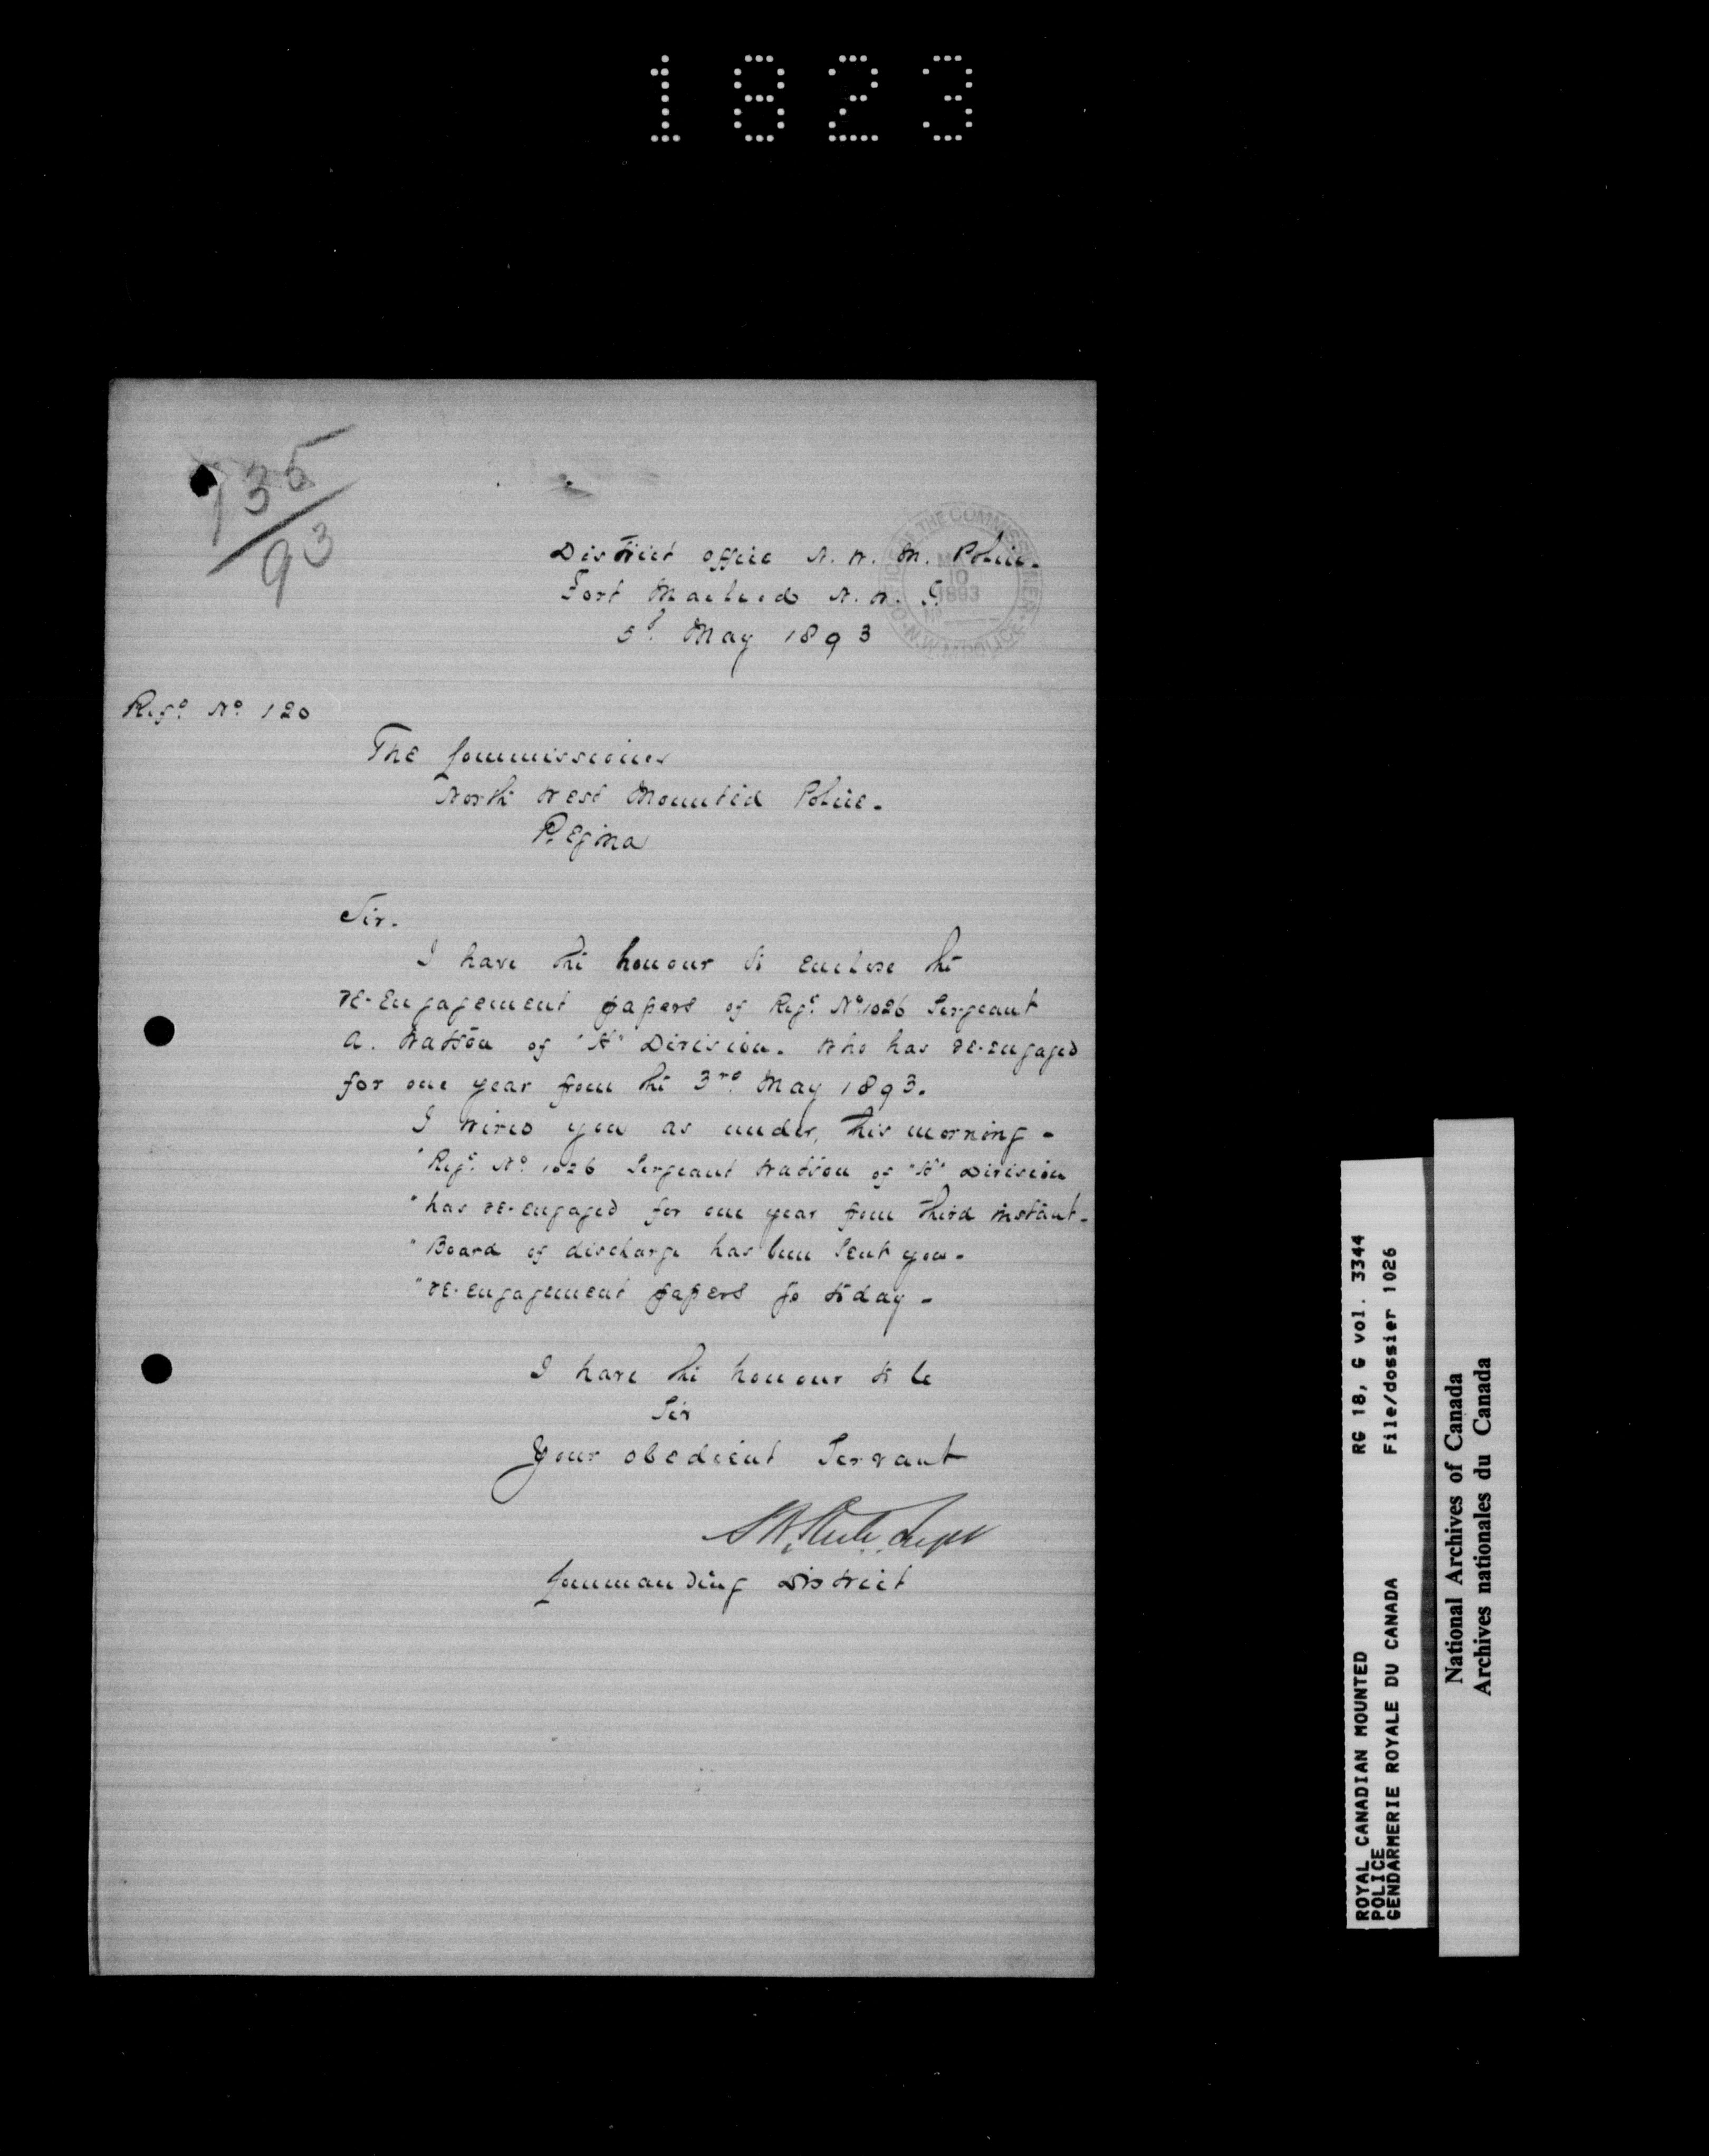 1823
735
93
District Office N. W. M. Police.
Fort Macleod N. W. T.
5th May 1893
OFFICE OF THE COMMISSIONER
MAY
10
1893
No.
N.W.M. POLICE
Refce No 120
The Commissioner
North West Mounted Police.
Regina
Sir.
I have the honour to enclose the
re-engagement papers of Regt No 1026 Sergeant
A. Watson of "H" Division. Who has re-engaged
for one year from the 3rd May 1893.
I wired you as under, this morning -
"Regt No 1026 Sergeant Watson of "H" Division
"has re-engaged for one year from third instant-
"Board of discharge has been sent you-
"re-engagement papers go today-
I have the honour to be
Sir
Your obedient Servant
S B Steele Supt
Commanding District
ROYAL CANADIAN MOUNTED
POLICE
GENDARMERIE ROYALE DU CANADA
RG 18, G vol. 3344
File/dossier 1026
National Archives of Canada
Archives nationales du Canada